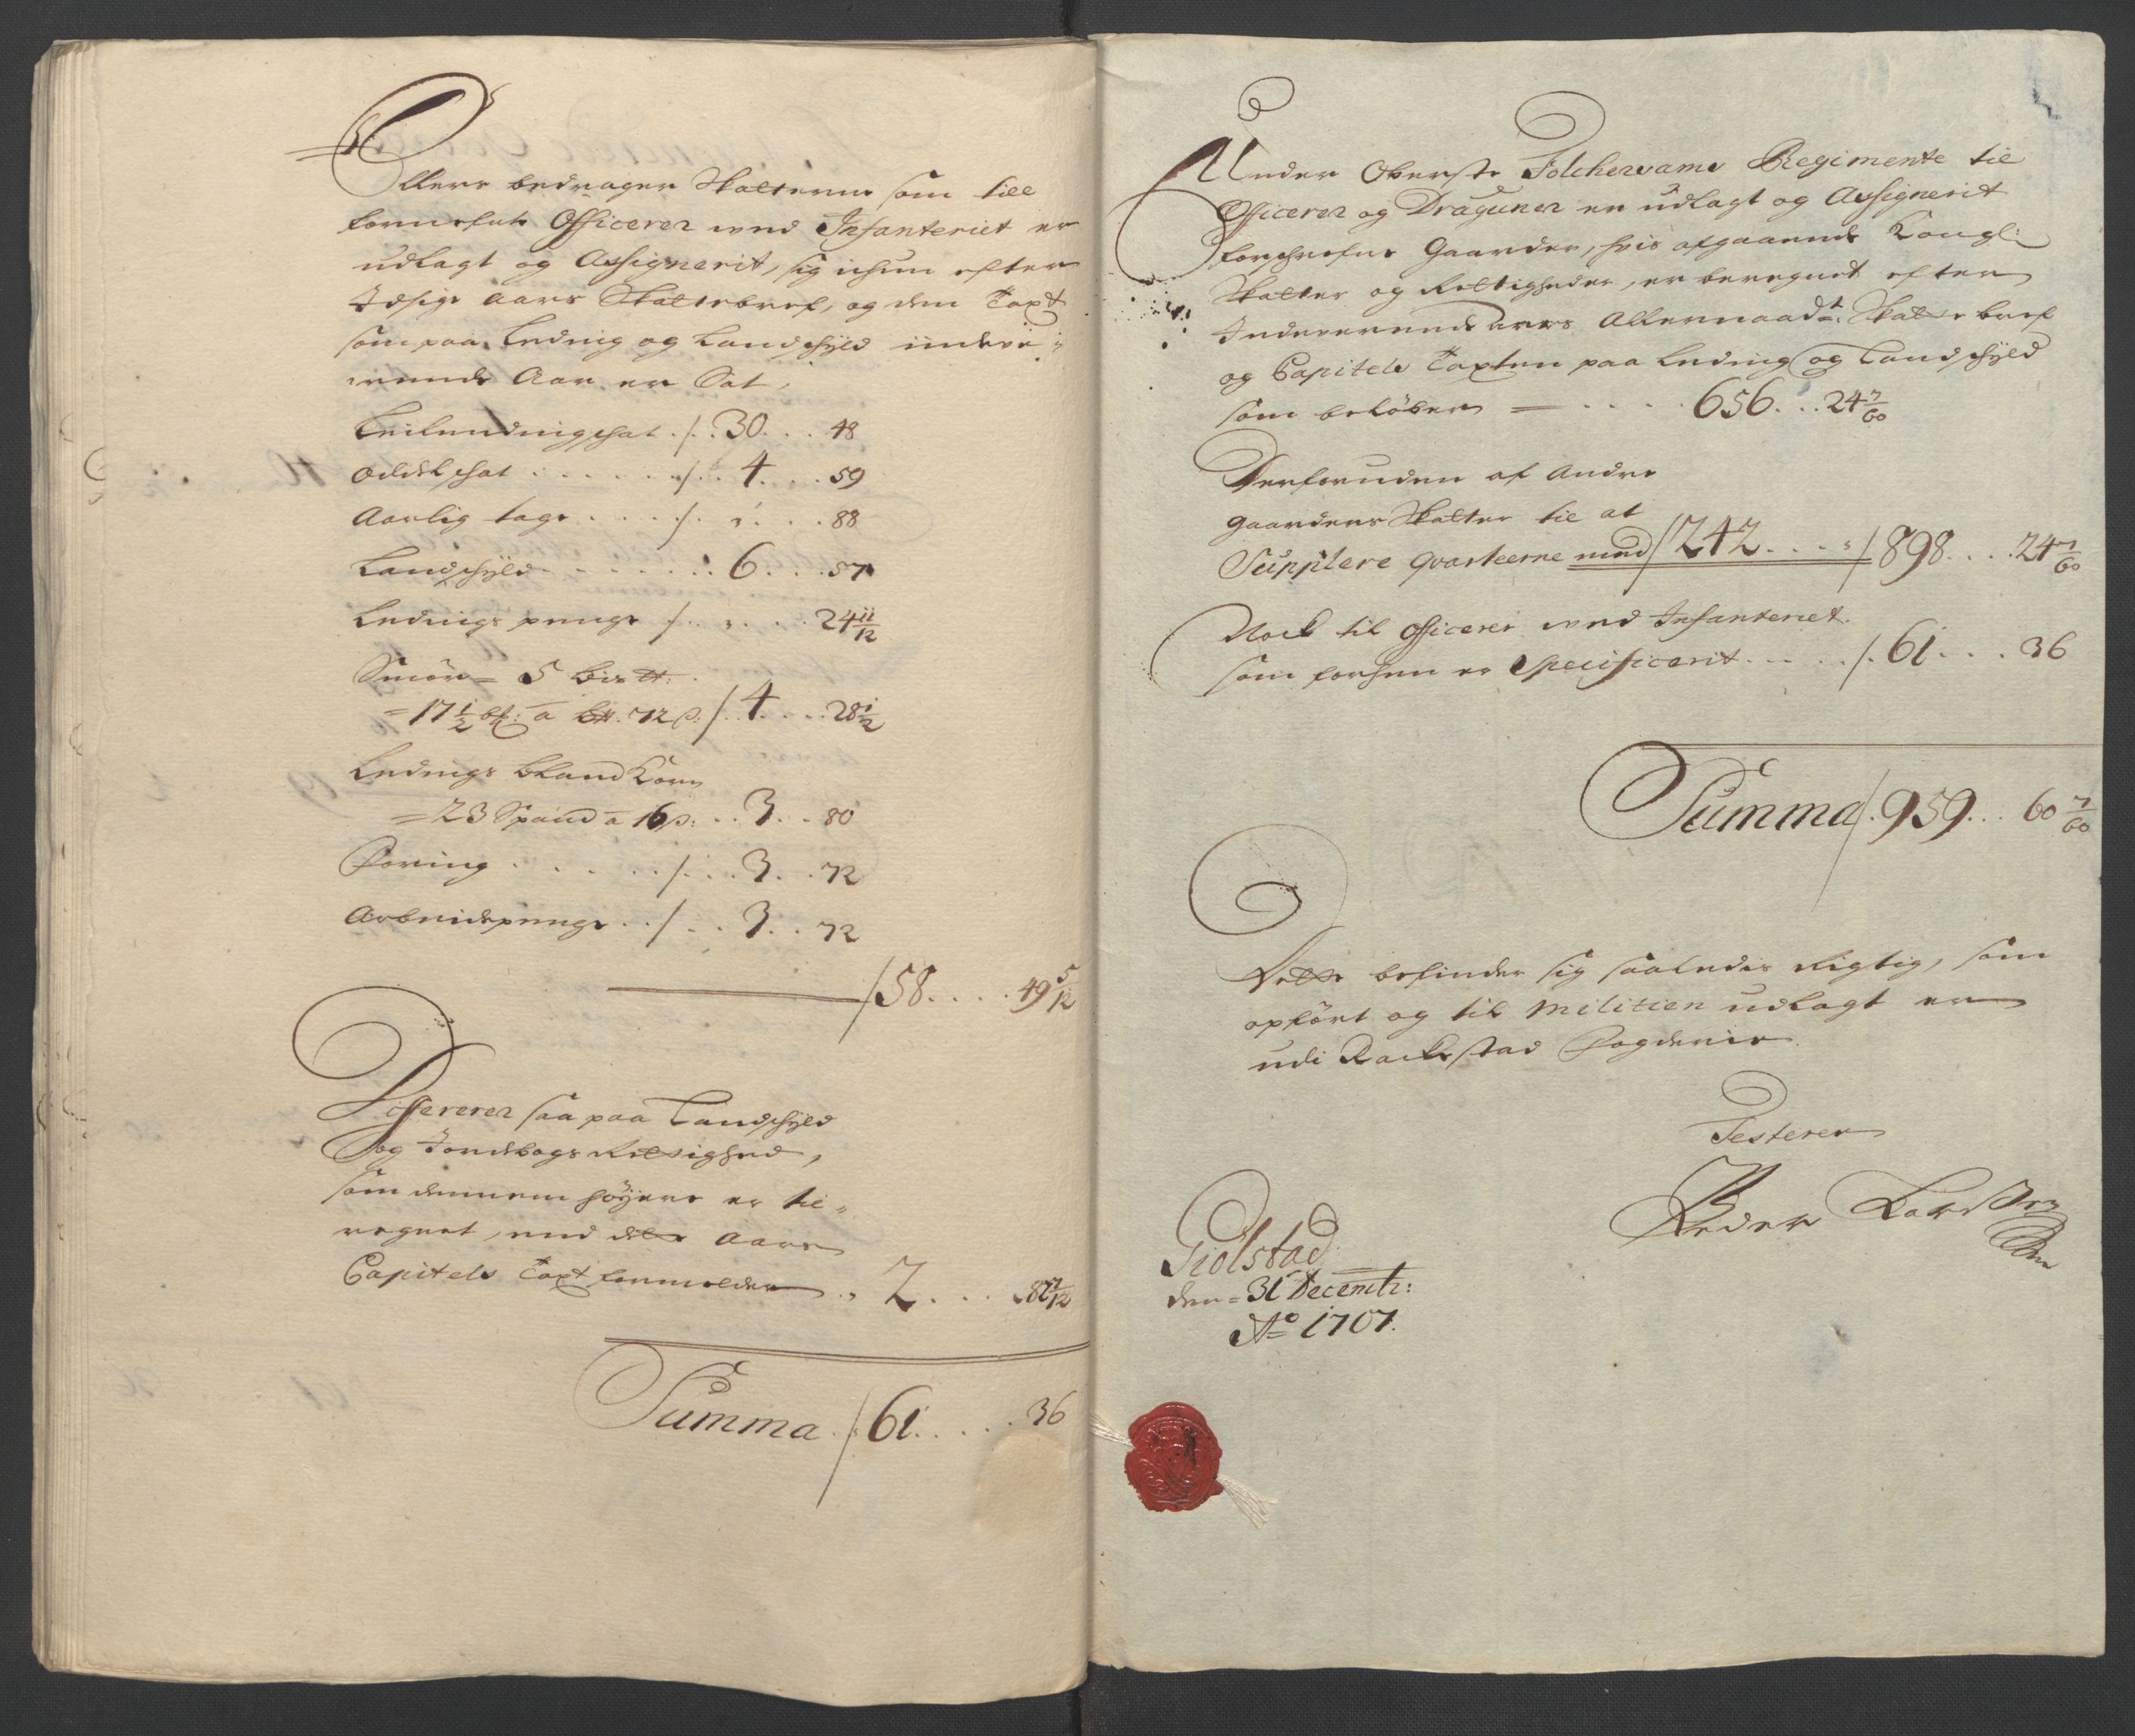 Ellers bedrager Skatterne som till
forneste Officerer wed Infanteriet er
udlagt og Assignerit, sig ichun efter
Idsige Aars Skattebref, og den Taxt
som paa Leding og Landschyld indevæ-
rende Aar er Sat,
Leilendingschat ./. 30 . . . 48
Oddelschat . . . . . ./. . 4 . . . 59
Aarlig tage . . . . ./. „ . . . 88
Landschyld . . . . . . . 6 . . . 57
Ledings penge ./. . „ . . . 24 11/12
Smör = 5 bis℔:
= 17 1/2 ℔: a b℔. 72 s: /. 4 . . . 28 1/2
Ledings bland Korn
= 23 Spand a 16 s: . . 3 . . 80
Foring . . . . . . ./. . . 3 . . 72
Arbeidspenge . . /. . . 3 . . 72
/ 58 . . . . 49 5/12
Differerer saa paa Landschyld
og Jordbogs Rettighed,
som dennem höyere er til-
regnet, end dette Aars
Capitels Taxt formelder . „ 2 . . . . 82 7/12
Summa . / 61 . . . . 36
Under Oberste Tolchervams Regimente til
Officerer og Draguner er udlagt og Assignerit
forschrefne Gaarder, hvis afgaaende Kongl:
Skatter og Rettigheder, er beregnet efter
Indeverende aars Allernaadt: Skatte bref
og Capitels Taxten paa Leding og Landschyld
som belöber = . . . . 656 . . . 24 7/60
Derforuden af Andre
Gaarders Skatter til at
Supplere qvarteerne med / 242 . . . „ / 898 . . . . 24 7/60
Nock til Officerer wed Infanteriet
som forhen er Specificerit . . . . ./. 61 . . . 36
Summa /. 959 . . . 60 7/60
Dette befindes sig saaledis Rigtig, som
opfört og til Militien udlagt er
udi Rackestad Fogderie
Testerer
Peder Larssen
Giölstad
den = 31 Decembr:
Ao 1707.